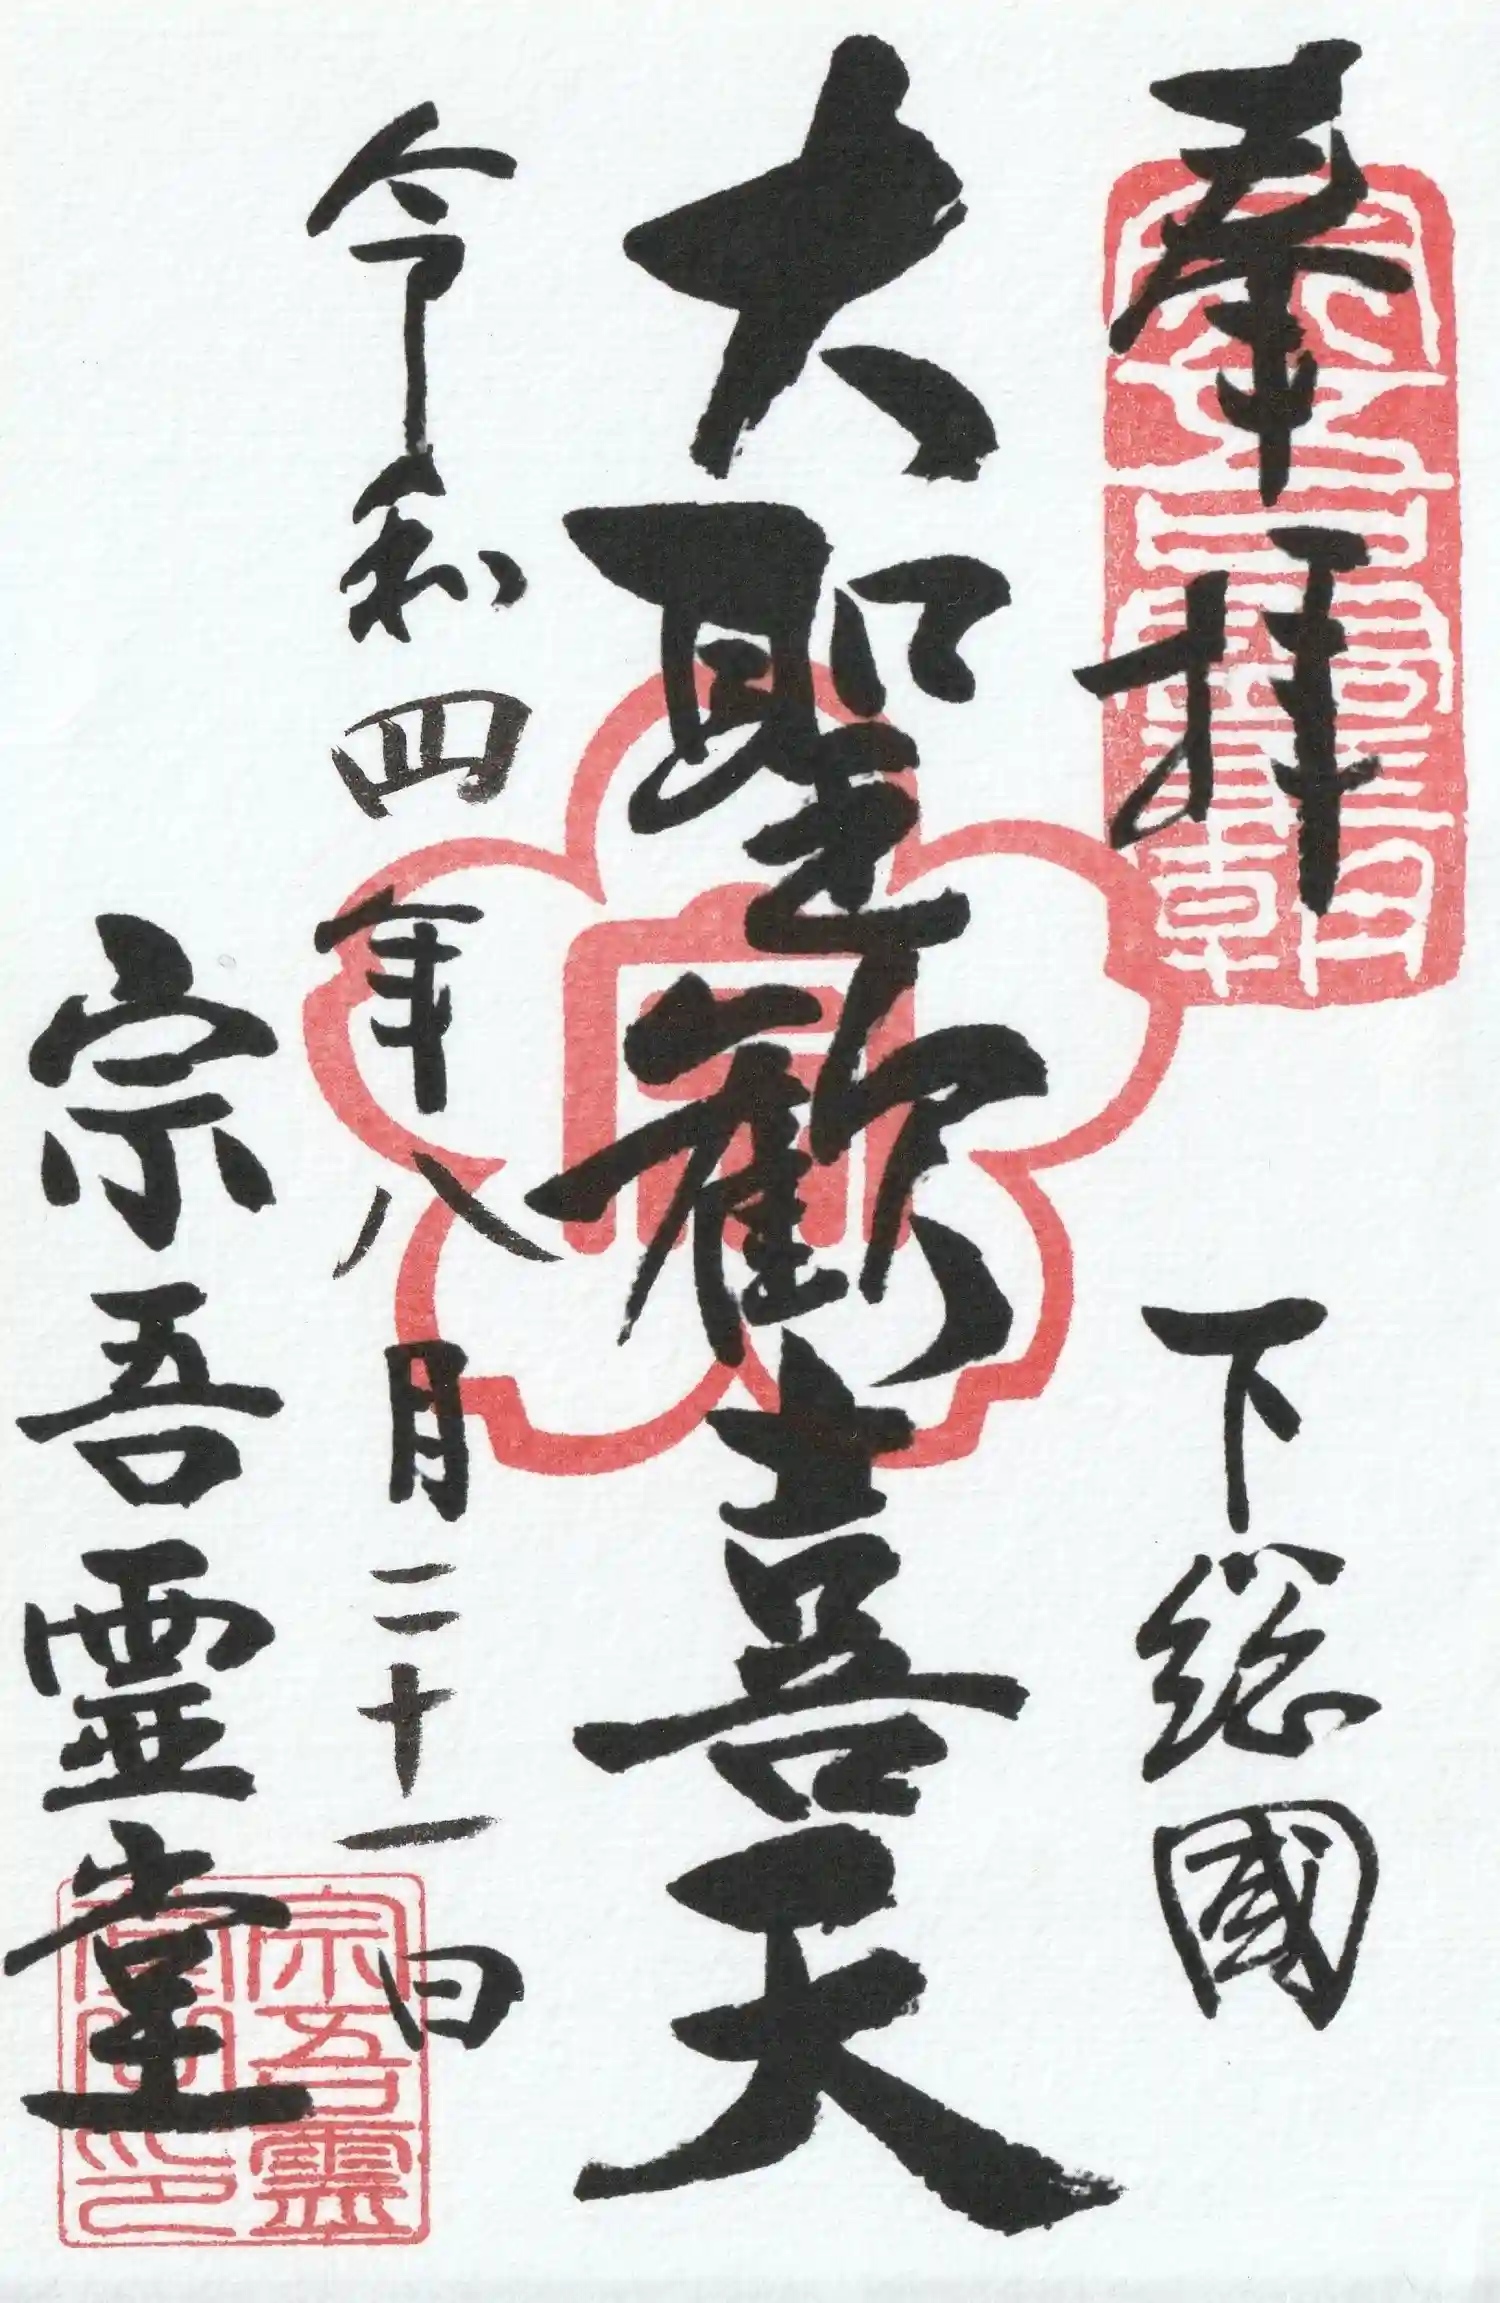 奉拝
下総國
大聖歓喜天
令和四年八月二十一日
宗吾霊堂
宗吾霊